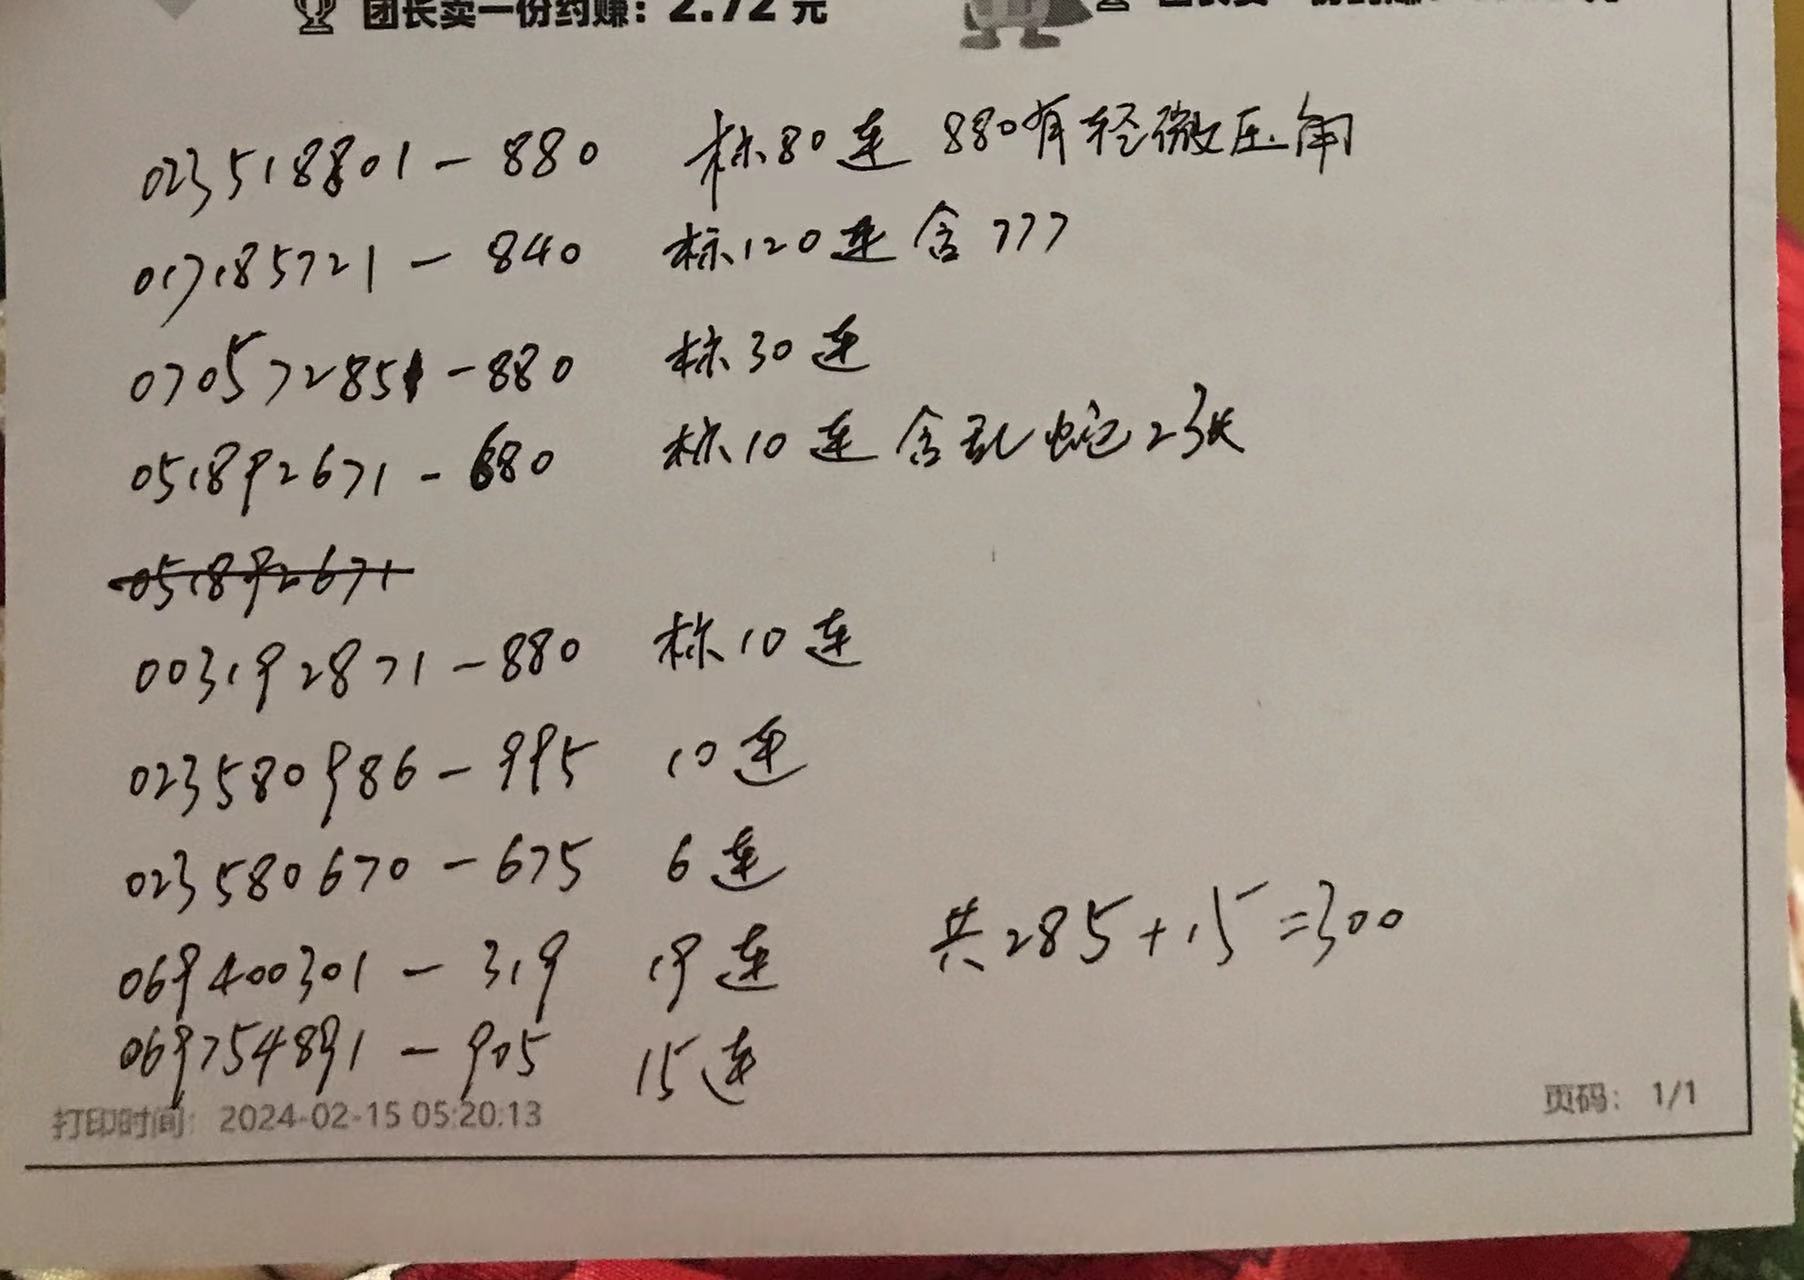 团长卖一份约赚：2.72 元
023518801－880 标80连 880有轻微压角
017185721－840 标120连 含777
070572851－880 标30连
051892671－680 标10连 含乱蛇23张
051892671
003192871－880 标10连
023580986－995 10连
023580670－675 6连
069400301－319 19连
共285+15=300
069754891－905 15连
打印时间：2024-02-15 05:20:13
页码：1/1